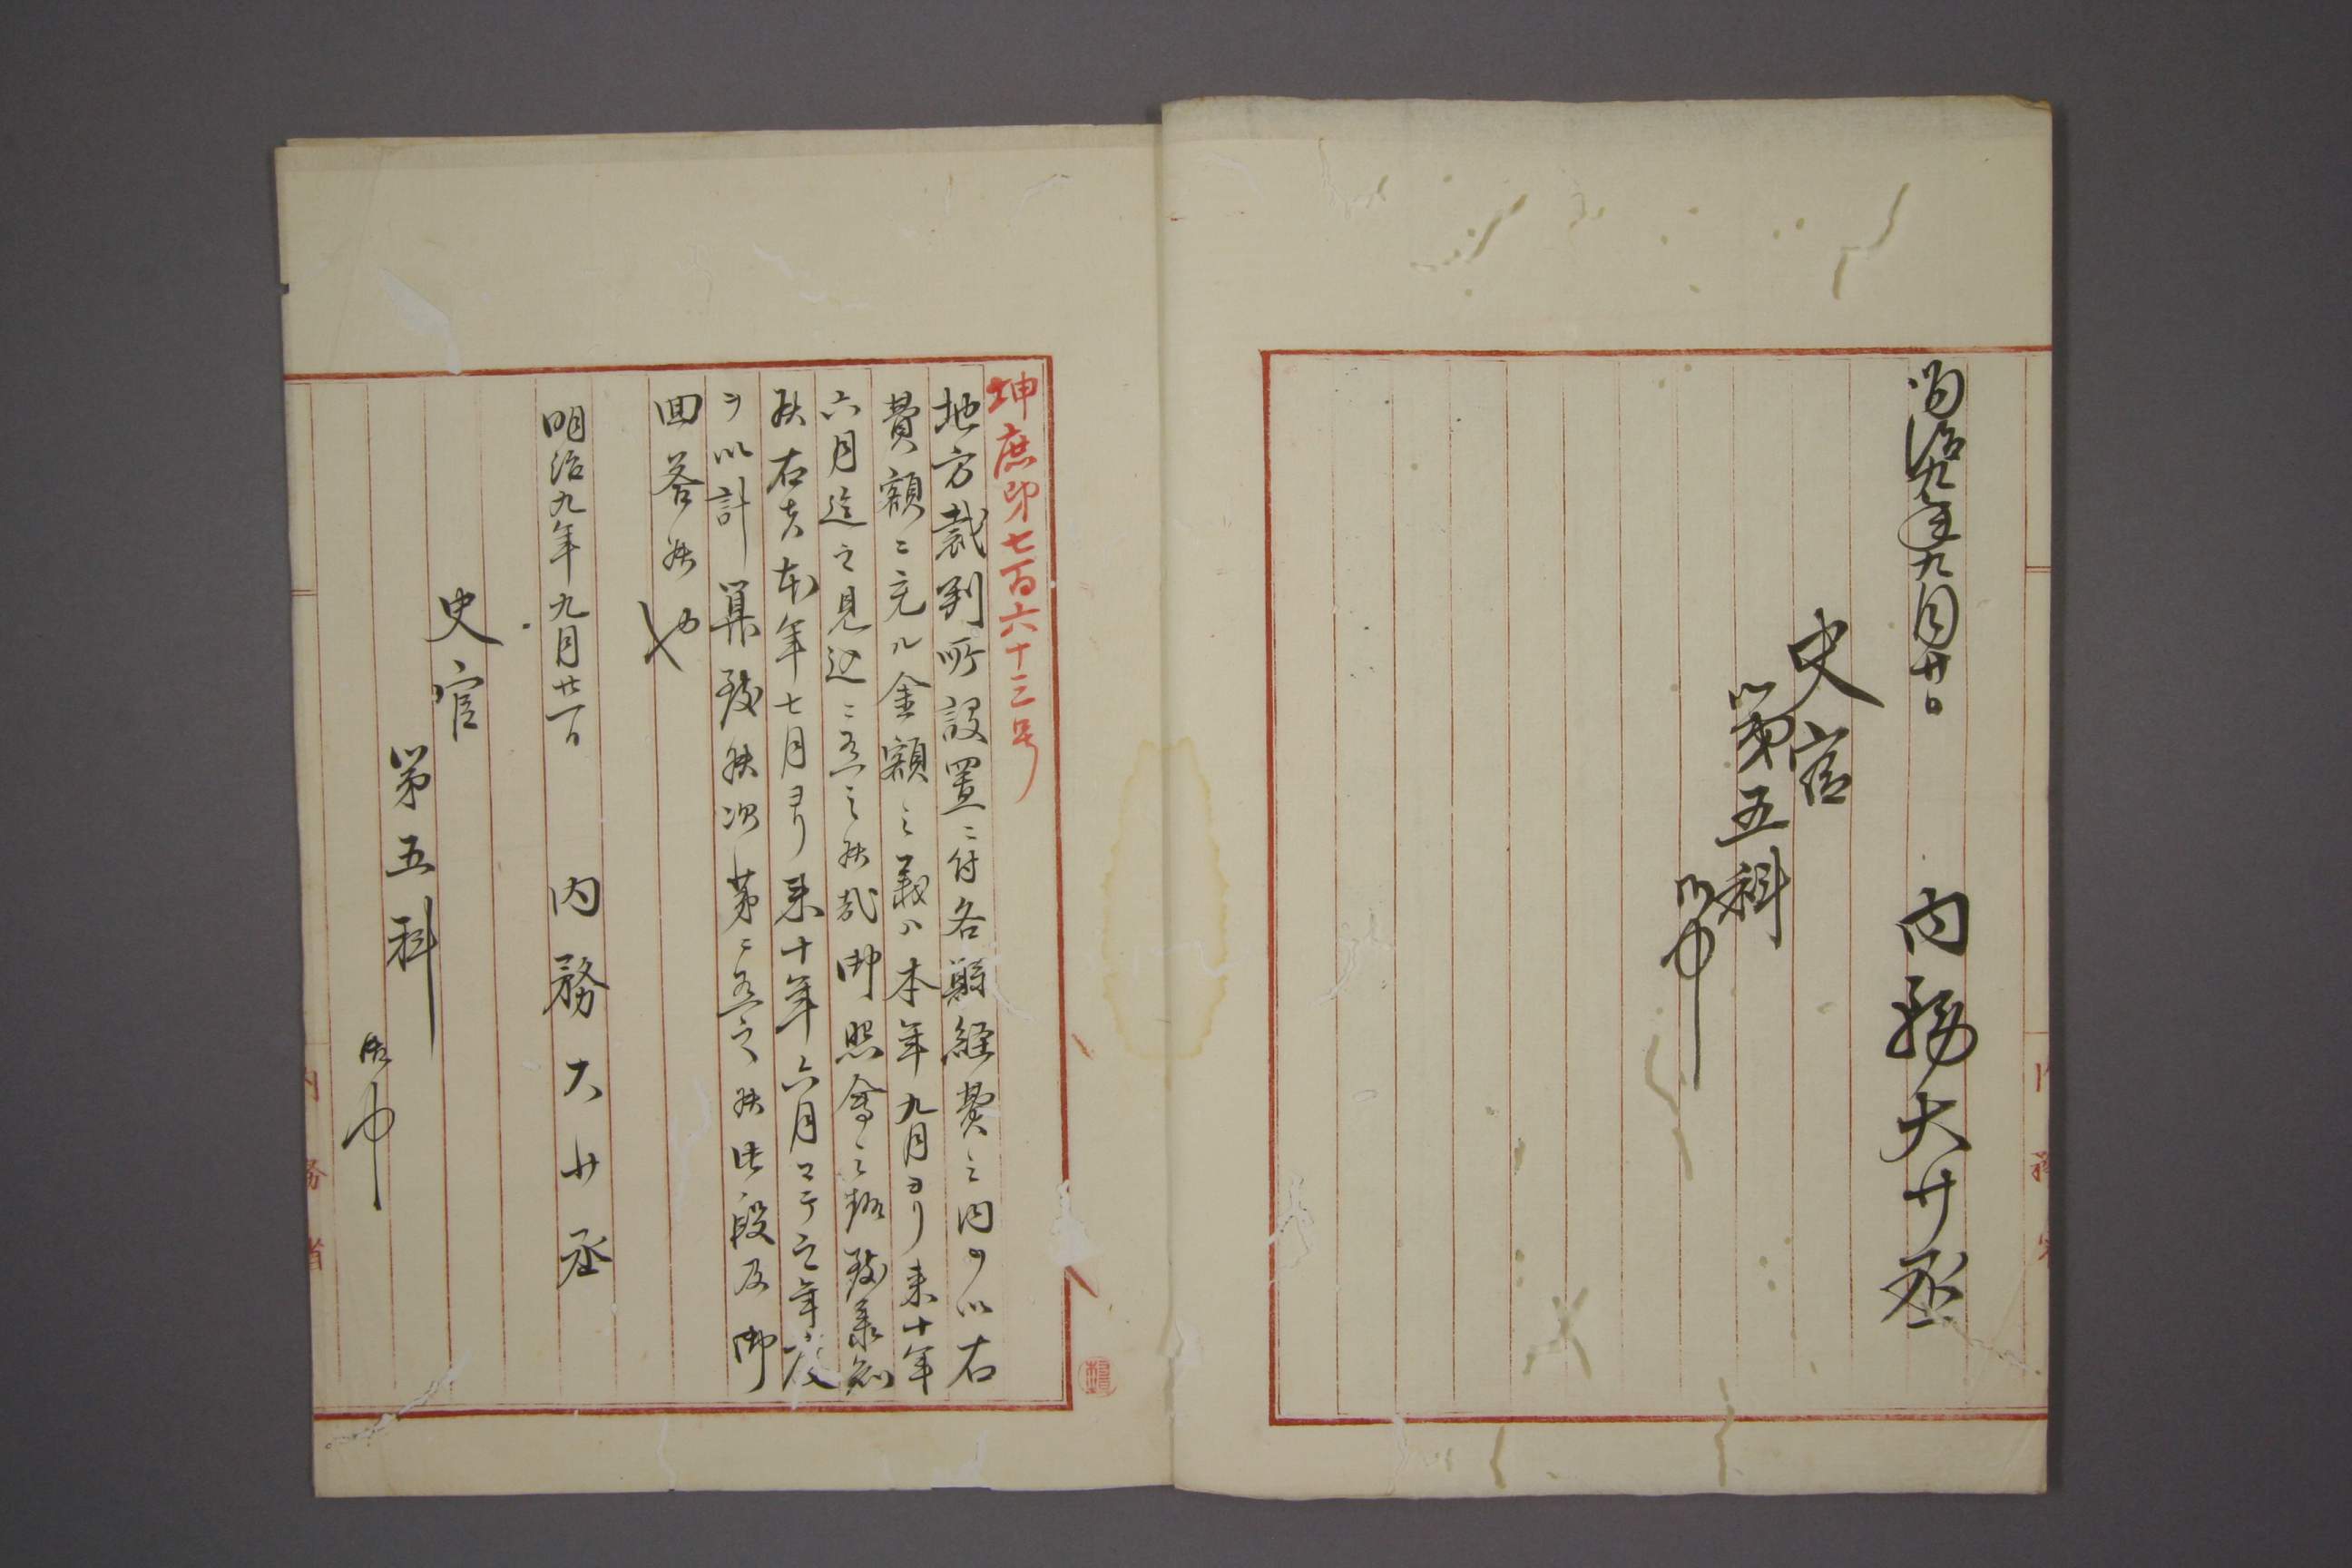 明治九年九月廿日
内務大少丞
史官
第五科
御中
坤庶第七百六十三号
地方裁判所設置ニ付各県経費之内ヲ以右
費額ニ充ル金額之義ハ本年九月ヨリ来十年
六月迄之見込ニ有之候哉御照会之趣致承知
候右者本年七月ヨリ来十年六月マテ之年度
ヲ以計算致候次第ニ有之候此段及御
回答候也
明治九年九月廿一日
内務大少丞
史官
第五科
御中
内務省